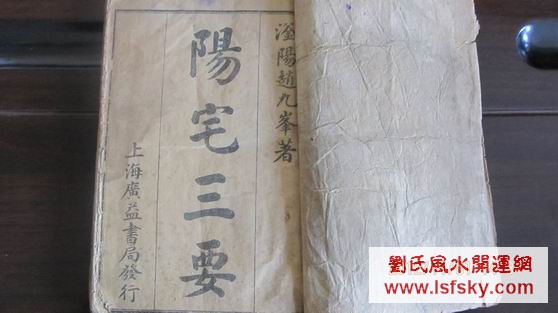 滏陽趙九峯著
陽宅三要
上海廣益書局發行
劉氏風水開運網
www.lsfsky.com